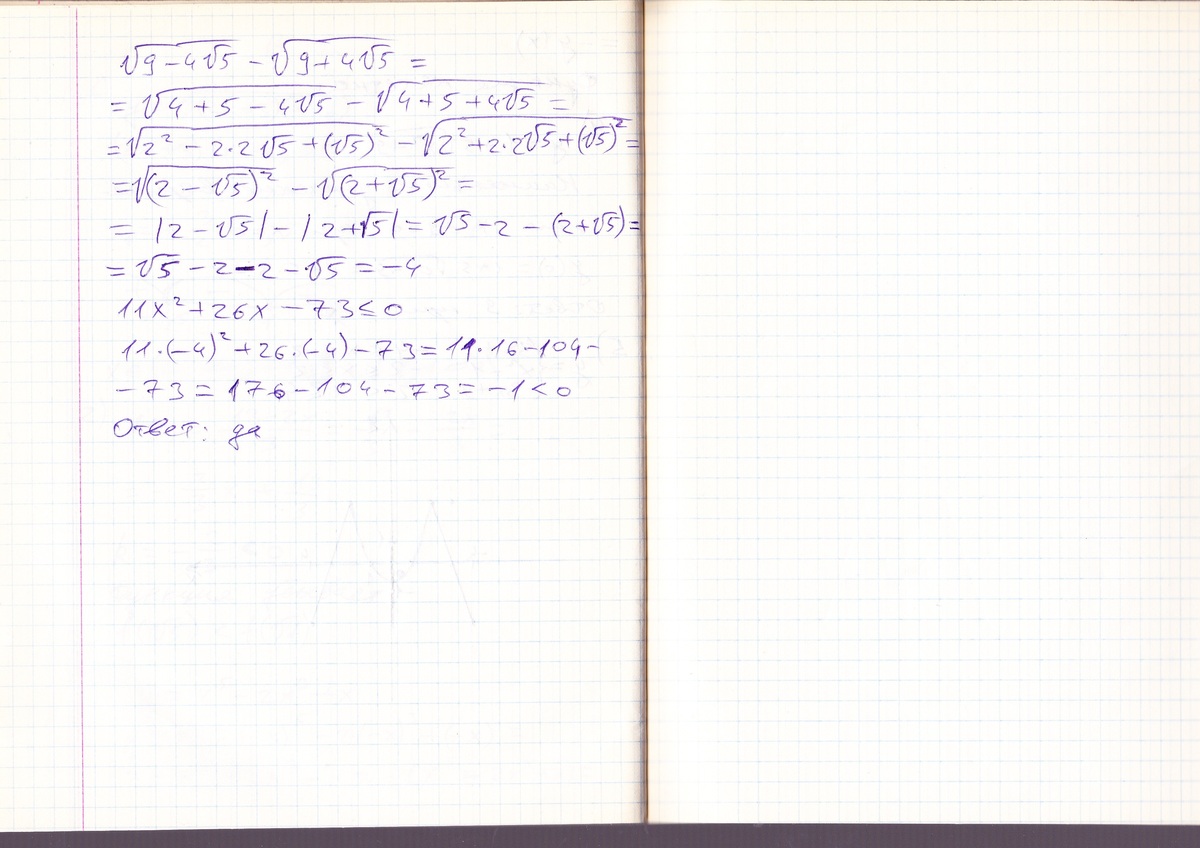 √9-4√5 - √9+4√5 =
= √4+5-4√5 - √4+5+4√5 =
= √2² - 2·2√5 + (√5)² - √2² + 2·2√5 + (√5)² =
= √(2-√5)² - √(2+√5)² =
= |2-√5| - |2+√5| = √5-2 - (2+√5) =
= √5 - 2 - 2 - √5 = -4
11x² + 26x - 73 ≤ 0
11·(-4)² + 26·(-4) - 73 = 11·16 - 104 -
- 73 = 176 - 104 - 73 = -1 < 0
Ответ: да